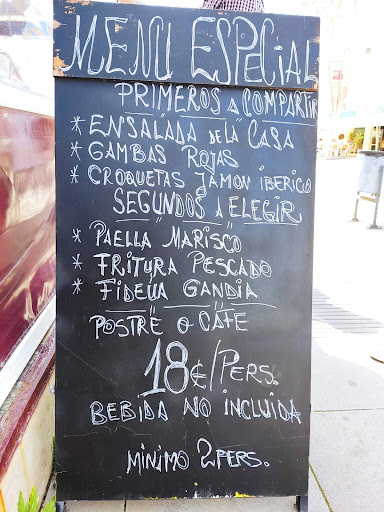 MENU ESPECIAL
PRIMEROS A COMPARTIR
* ENSALADA DE LA CASA
* GAMBAS ROJAS
* CROQUETAS JAMON IBERICO
SEGUNDOS A ELEGIR
* PAELLA MARISCO
* FRITURA PESCADO
* FIDEUA GANDIA
POSTRE O CAFE
18€/PERS.
BEBIDA NO INCLUIDA
MINIMO 2 PERS.